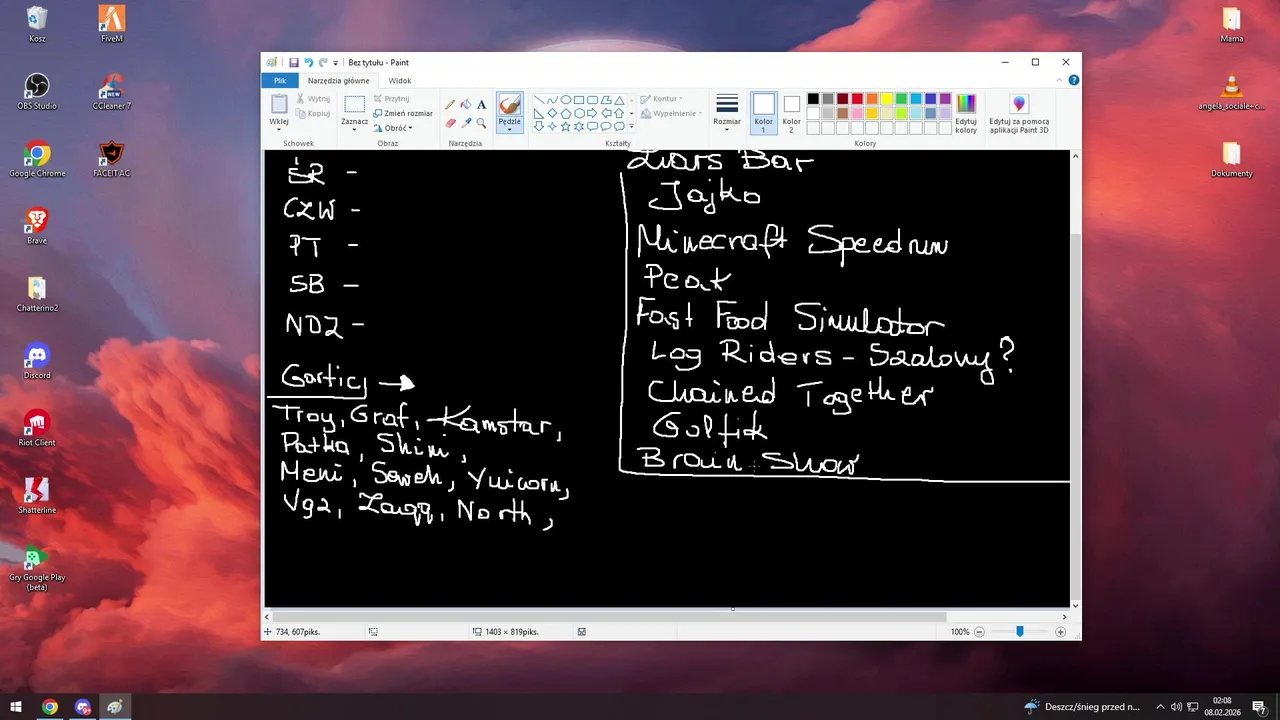 Kosz
FiveM
OBS Studio
CCleaner 7
Google Chrome
FACEIT AC
Brave
Chatterino2
Discord
Riot Client
Shatterline
Gry Google Play
(beta)
Mama
angela_sociale+c...
Dokumenty
Bez tytułu - Paint
Plik
Narzędzia główne
Widok
Wklej
Wytnij
Kopiuj
Schowek
Zaznacz
Przytnij
Zmień rozmiar
Obróć
Obraz
Narzędzia
Pędzle
Kontur
Wypełnienie
Kształty
Rozmiar
Kolor
1
Kolor
2
Edytuj
kolory
Kolory
Edytuj za pomocą
aplikacji Paint 3D
ŚR -
CZW -
PT -
SB -
NDZ -
Gartic
Troy, Graf, Kamstar,
Patka, Shini,
Meni, Saweh, Yuicorn,
Vgz, Zaqq, North,
Liars Bar
Jajko
Minecraft Speedrun
Peak
Fast Food Simulator
Log Riders - Szalony?
Chained Together
Golfik
Brain Show
734, 607piks.
1403 × 819piks.
100%
Deszcz/śnieg przed n...
02:08
08.02.2026